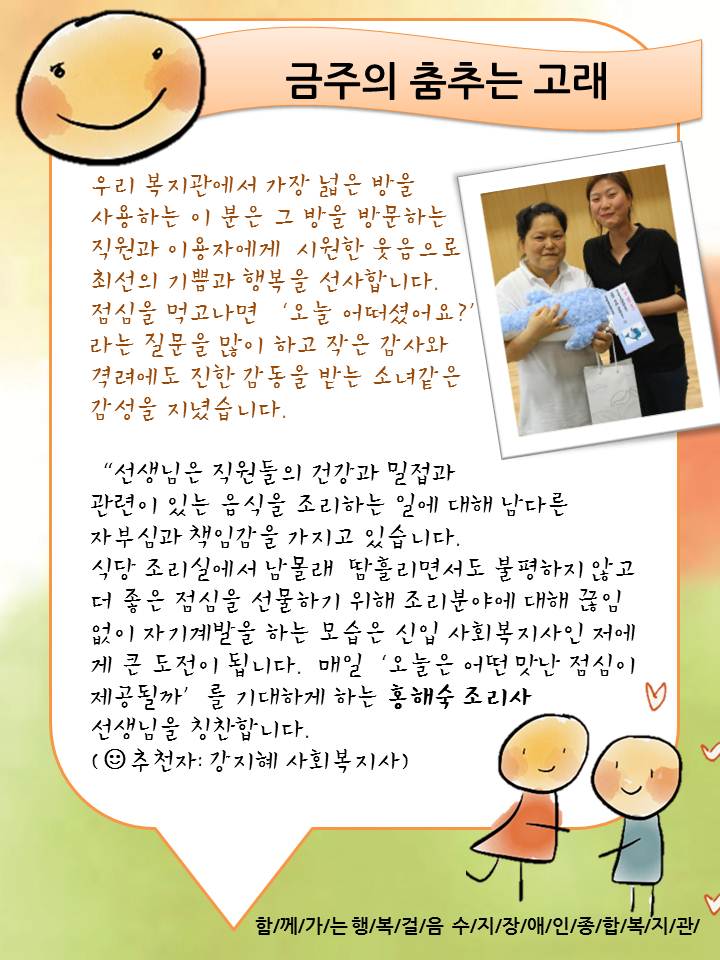 금주의 춤추는 고래
우리 복지관에서 가장 넓은 방을
사용하는 이 분은 그 방을 방문하는
직원과 이용자에게 시원한 웃음으로
최선의 기쁨과 행복을 선사합니다.
점심을 먹고나면 ‘오늘 어떠셨어요?’
라는 질문을 많이 하고 작은 감사와
격려에도 진한 감동을 받는 소녀같은
감성을 지녔습니다.
“선생님은 직원들의 건강과 밀접과
관련이 있는 음식을 조리하는 일에 대해 남다른
자부심과 책임감을 가지고 있습니다.
식당 조리실에서 남몰래 땀흘리면서도 불평하지 않고
더 좋은 점심을 선물하기 위해 조리분야에 대해 끊임
없이 자기계발을 하는 모습은 신입 사회복지사인 저에
게 큰 도전이 됩니다. 매일 ‘오늘은 어떤 맛난 점심이
제공될까’ 를 기대하게 하는 홍해숙 조리사
선생님을 칭찬합니다.
(☺추천자: 강지혜 사회복지사)
함/께/가/는 행/복/걸/음 수/지/장/애/인/종/합/복/지/관/